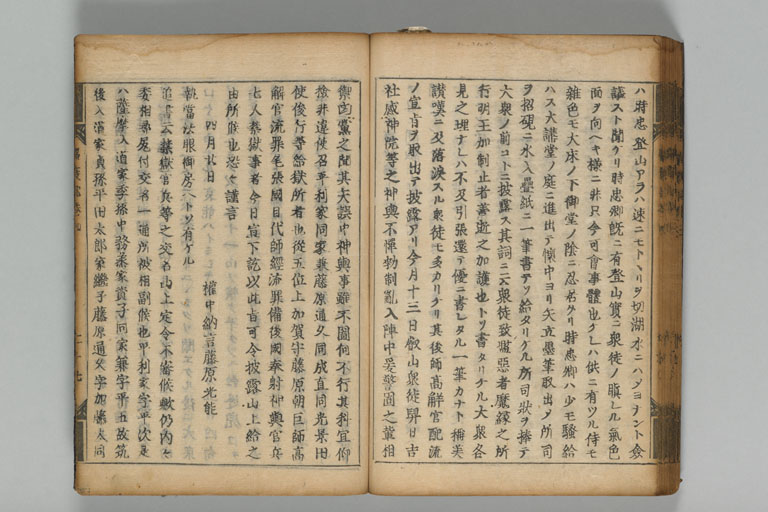 ハ時忠登山アラハ速ニモトヽリヲ切湖水ニハメヨナント僉
議スト聞ケリ時忠卿既ニ有登山實ニ衆徒ノ瞋レル氣色
面ヲ向ヘキ樣ニ非只今可會事體也クレハ供ニ有ツル侍モ
雜色モ大床ノ下御堂ノ陰ニ忍居タリ時忠卿ハ少モ騷給
ハス大講堂ノ庭ニ進出テ懷中ヨリ矢立墨筆取出メ所司
ヲ招硯ニ水入疊紙ニ一筆書テソ給タリケル所司狀ヲ捧テ
大衆ノ前コトニ披露ス其詞ニ云衆徒致濫惡者魔緣之所
行明王加制止者善逝之加護也トソ書タリケル大衆各
見之理ナレハ不及引張還テ優ニ書レタル一筆カナト稱美
讚嘆ニ及落淚スル衆徒モ多カリケリ其後師高解官配流
ノ宣旨ヲ取出テ披露アリ今月十三日叡山衆徒舁日吉
社感神院等之神輿不憚勅制亂入陣中爰警固之輩相
禦凶黨之間其矢誤中神輿事雖不圖何不行其科宜仰
檢非違使召平利家同家兼藤原通久同成直同光景田
使俊行等給獄所者也從五位上加賀守藤原朝臣師高
解官流罪尾張國目代師經流罪備後國奉射神輿官兵
七人禁獄事者今日宣下訖以此旨可令披露山上給之
由所候也恐々謹言
四月廿日 權中納言藤原光能
執當法眼御房ヘトソ有ケル
追書云禁獄官兵等之交名山上定令不審候歟仍內々
委相尋尻付交名一通所被相副候也平利家字平次是
ハ薩摩入道家季孫中務丞家資子同家兼字平五故筑
後入道家貞孫平田太郎家繼子藤原通久字加藤太同